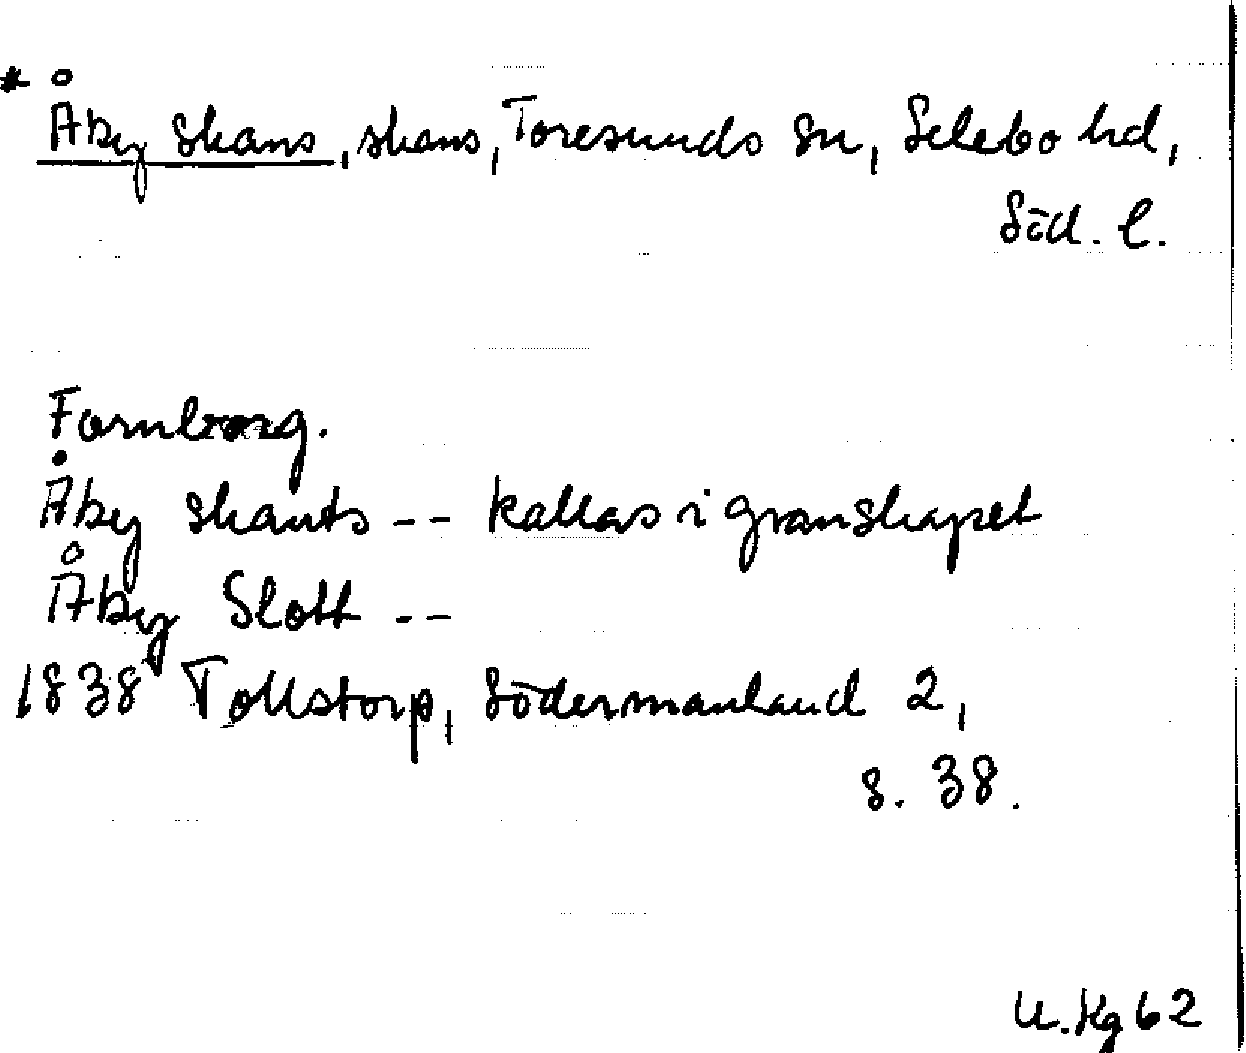 * Åby skans, skans, Toresunds sn, Selebo hd,
Söd. l.
Fornborg.
Åby skants -- kallas i granskapet
Åby Slott --
1838 Tollstorp, Södermanland 2,
s. 38.
U.Hg 62